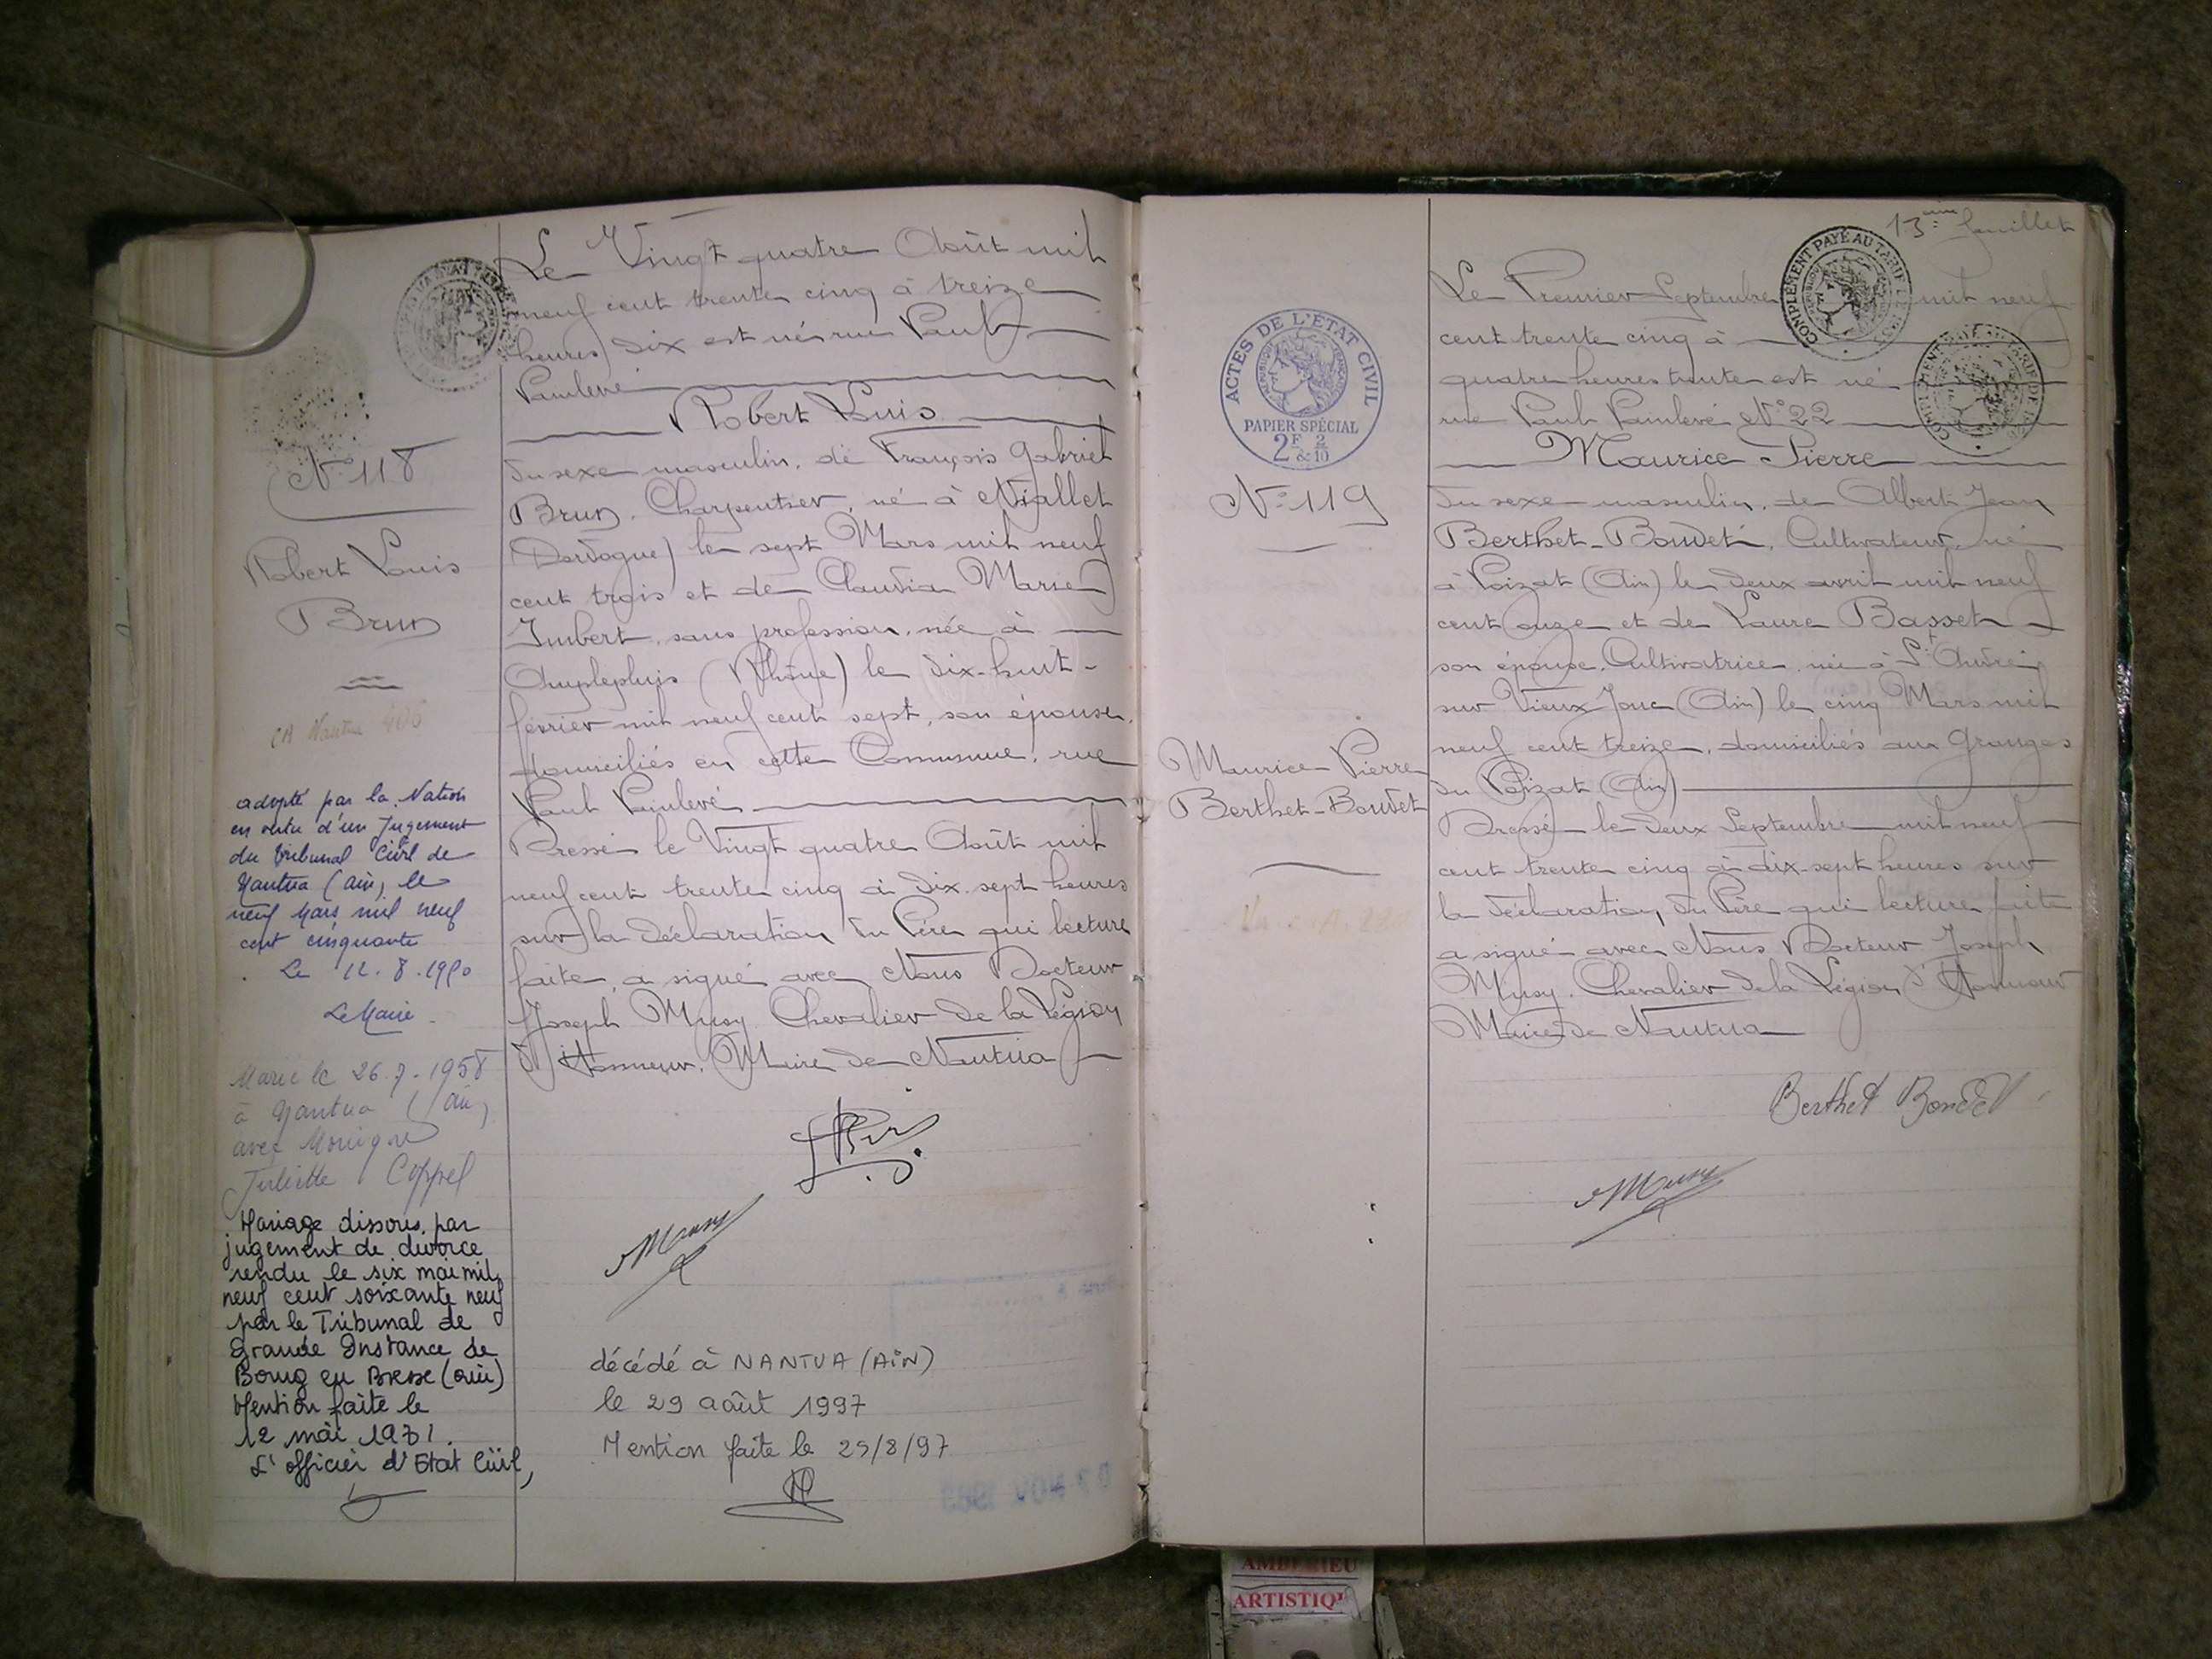 Le Vingt quatre Août mil
neuf cent trente cinq à treize
heures dix est né rue Paul
Painlevé
Robert Louis
du sexe masculin, de François Gabriel
Brun, Charpentier, né à Niallet
(Dordogne) le sept Mars mil neuf
cent trois et de Claudia Marie
Imbert, sans profession, née à
Amplepluis (Rhône) le dix-huit
février mil neuf cent sept, son épouse,
domiciliés en cette Commune, rue
Paul Painlevé
Dressé le Vingt quatre Août mil
neuf cent trente cinq à dix-sept heures
sur la déclaration du Père qui lecture
faite, a signé avec Nous Docteur
Joseph Musy Chevalier de la Légion
d'Honneur, Maire de Nantua
Musy
décédé à NANTUA (AIN)
le 29 août 1997
Mention faite le 29/8/97
N° 118
Robert Louis
Brun
adopté par la Nation
en vertu d'un Jugement
du tribunal Civil de
Nantua (ain) le
neuf Mars mil neuf
cent cinquante
Le 12.8.1950
Le Maire
Marié le 26.7.1958
à Nantua (ain)
avec Monique
Juliette Coppel
Mariage dissous par
jugement de divorce
rendu le six mai mil
neuf cent soixante neuf
par le Tribunal de
Grande Instance de
Bourg en Bresse (ain)
Mention faite le
12 mai 1971.
L'officier d'Etat Civil,
13ème feuillet
COMPLEMENT PAYÉ AU TARIF DE
ACTES DE L'ETAT CIVIL
REPUBLIQUE FRANÇAISE
PAPIER SPÉCIAL
2F & 2/10
N° 119
Maurice Pierre
Berthet-Boudet
Le Premier Septembre mil neuf
cent trente cinq à
quatre heures trente est né
rue Paul Painlevé N° 22
Maurice Pierre
du sexe masculin, de Albert Jean
Berthet-Boudet, Cultivateur, né
à Poizat (Ain) le deux avril mil neuf
cent onze et de Laure Basset
son épouse, Cultivatrice, née à St André
sur Vieux Jonc (Ain) le cinq Mars mil
neuf cent treize, domiciliés aux Granges
du Poizat (Ain)
Dressé le deux Septembre mil neuf
cent trente cinq à dix-sept heures sur
la déclaration du Père qui lecture faite
a signé avec Nous Docteur Joseph
Musy, Chevalier de la Légion d'Honneur
Maire de Nantua
Berthet Boudet
Musy
AMBERIEU
ARTISTIQ